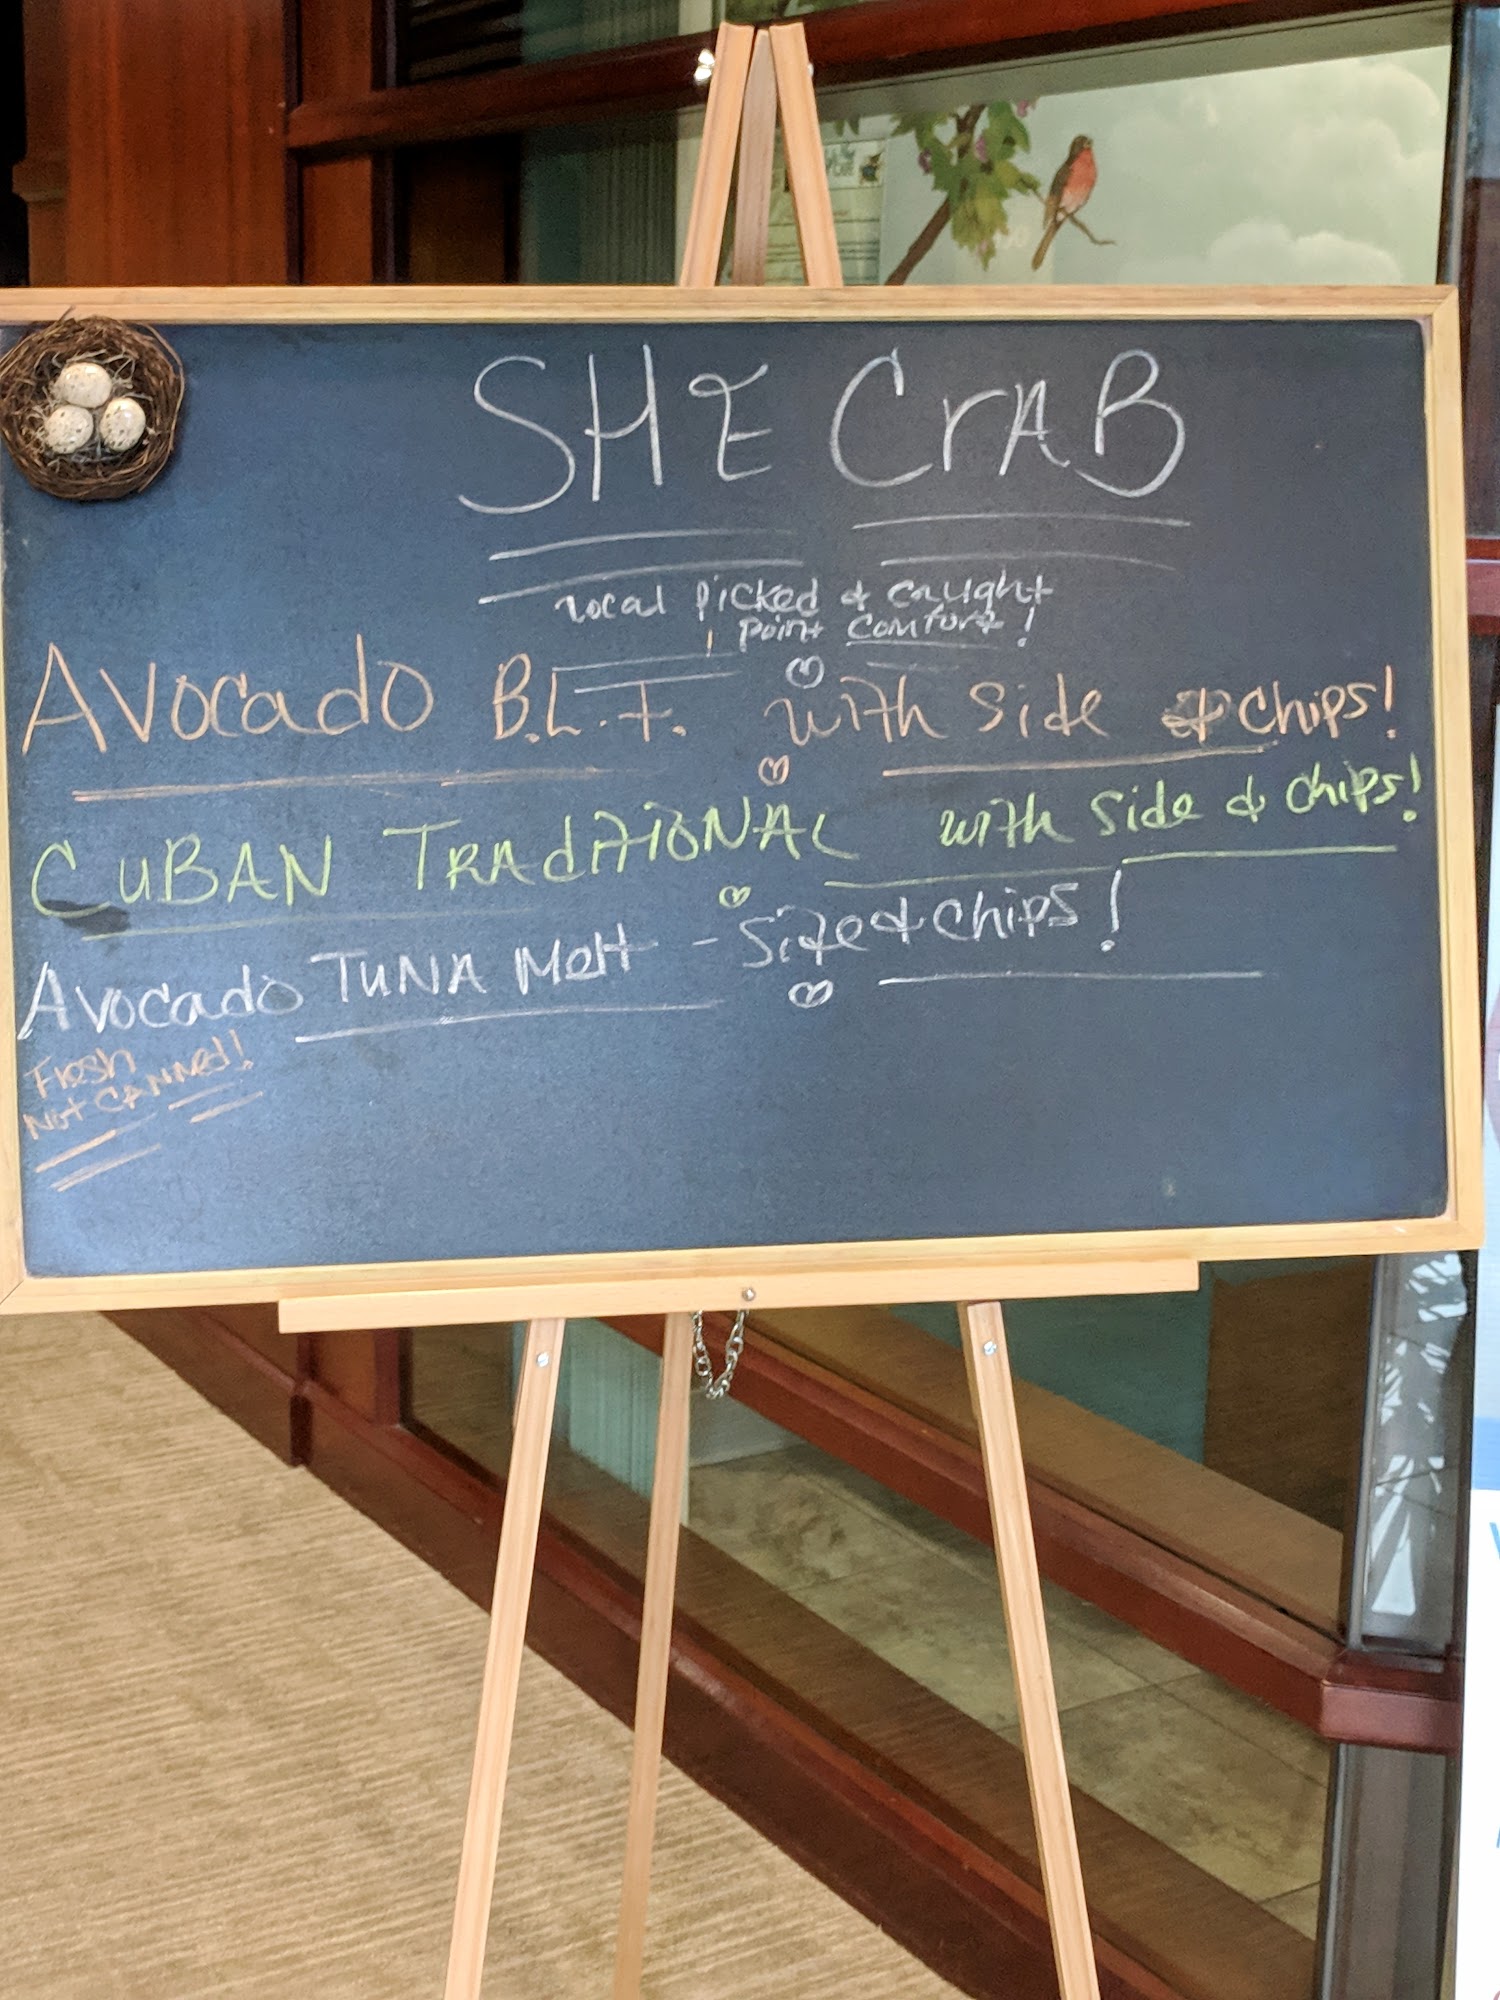 SHE CrAB
local Picked & caught
Point Comfort!
AVocado B.L.T. with Side & Chips!
CUBAN TRAdiTiONAL with Side & Chips!
Avocado TUNA Melt - Side & Chips!
Fresh
Not CANNed!